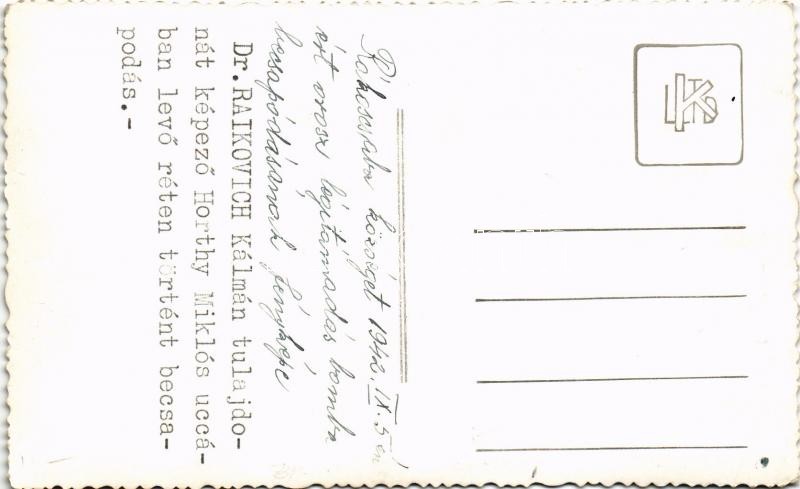 Rákoscsaba községet 1942. IX. 5 én
ért orosz légitámadás bomba
becsapódásának fényképe
Dr.RAIKOVICH Kálmán tulajdo-
nát képező Horthy Miklós uccá-
ban levő réten történt becsa-
podás.-